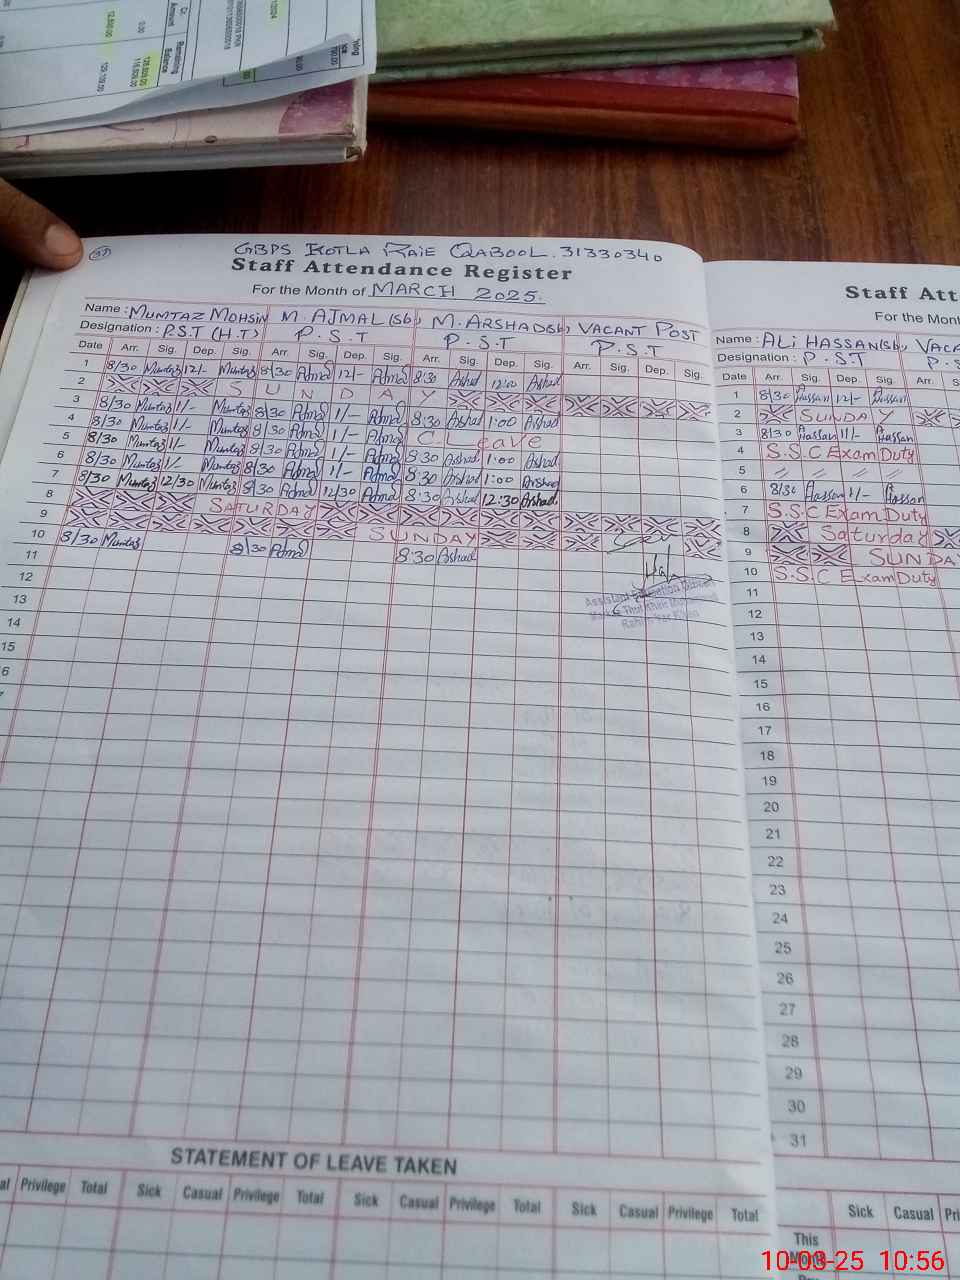 GBPS KOTLA RAIE QABOOL. 31330340
Staff Attendance Register
For the Month of MARCH 2025.
Name : MUMTAZ MOHSIN M. AJMAL (Sb) M. ARSHAD(Sb) VACANT POST
Designation : P.S.T (H.T) P.S.T P.S.T P.S.T
Date Arr. Sig. Dep. Sig. Arr. Sig. Dep. Sig. Arr. Sig. Dep. Sig. Arr. Sig. Dep. Sig.
1 8/30 Mumtaz 12/- Mumtaz 8/30 Ajmal 12/- Ajmal 8:30 Arshad 12:00 Arshad
2 SUNDAY
3 8/30 Mumtaz 1/- Mumtaz 8/30 Ajmal 1/- Ajmal 8:30 Arshad 1:00 Arshad
4 8/30 Mumtaz 1/- Mumtaz 8/30 Ajmal 1/- Ajmal C.Leave
5 8/30 Mumtaz 1/- Mumtaz 8/30 Ajmal 1/- Ajmal 8:30 Arshad 1:00 Arshad
6 8/30 Mumtaz 1/- Mumtaz 8/30 Ajmal 1/- Ajmal 8:30 Arshad 1:00 Arshad
7 8/30 Mumtaz 12/30 Mumtaz 8/30 Ajmal 12/30 Ajmal 8:30 Arshad 12:30 Arshad
8 SATURDAY
9 SUNDAY
10 8/30 Mumtaz 8/30 Ajmal 8:30 Arshad
11
12
13
14
15
Assistant Education Officer
Rahim Yar Khan
STATEMENT OF LEAVE TAKEN
Privilege Total Sick Casual Privilege Total Sick Casual Privilege Total Sick Casual Privilege Total
Staff Att
For the Mont
Name : ALI HASSAN(Sb) VACA
Designation : P.S.T P.S
Date Arr. Sig. Dep. Sig. Arr. S
1 8/30 A Hassan 12/- A Hassan
2 SUNDAY
3 8/30 A Hassan 1/- A Hassan
4 S.S.C Exam Duty
5 // // //
6 8/30 A Hassan 1/- A Hassan
7 S.S.C Exam Duty
8 Saturday
9 SUNDA
10 S.S.C Exam Duty
11
12
13
14
15
16
17
18
19
20
21
22
23
24
25
26
27
28
29
30
31
Sick Casual Pri
This
Month
10-03-25 10:56